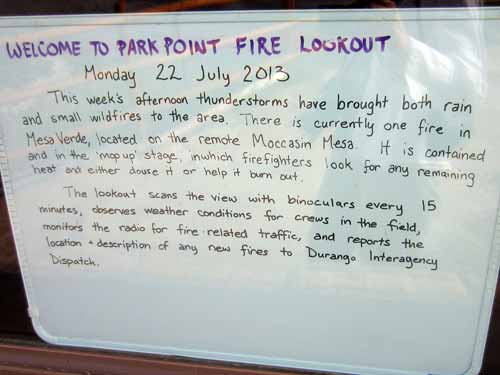 WELCOME TO PARK POINT FIRE LOOKOUT
Monday 22 July 2013
This week's afternoon thunderstorms have brought both rain
and small wildfires to the area. There is currently one fire in
Mesa Verde, located on the remote Moccasin Mesa. It is contained
and in the 'mop up' stage, in which firefighters look for any remaining
heat and either douse it or help it burn out.
The lookout scans the view with binoculars every 15
minutes, observes weather conditions for crews in the field,
monitors the radio for fire-related traffic, and reports the
location + description of any new fires to Durango Interagency
Dispatch.